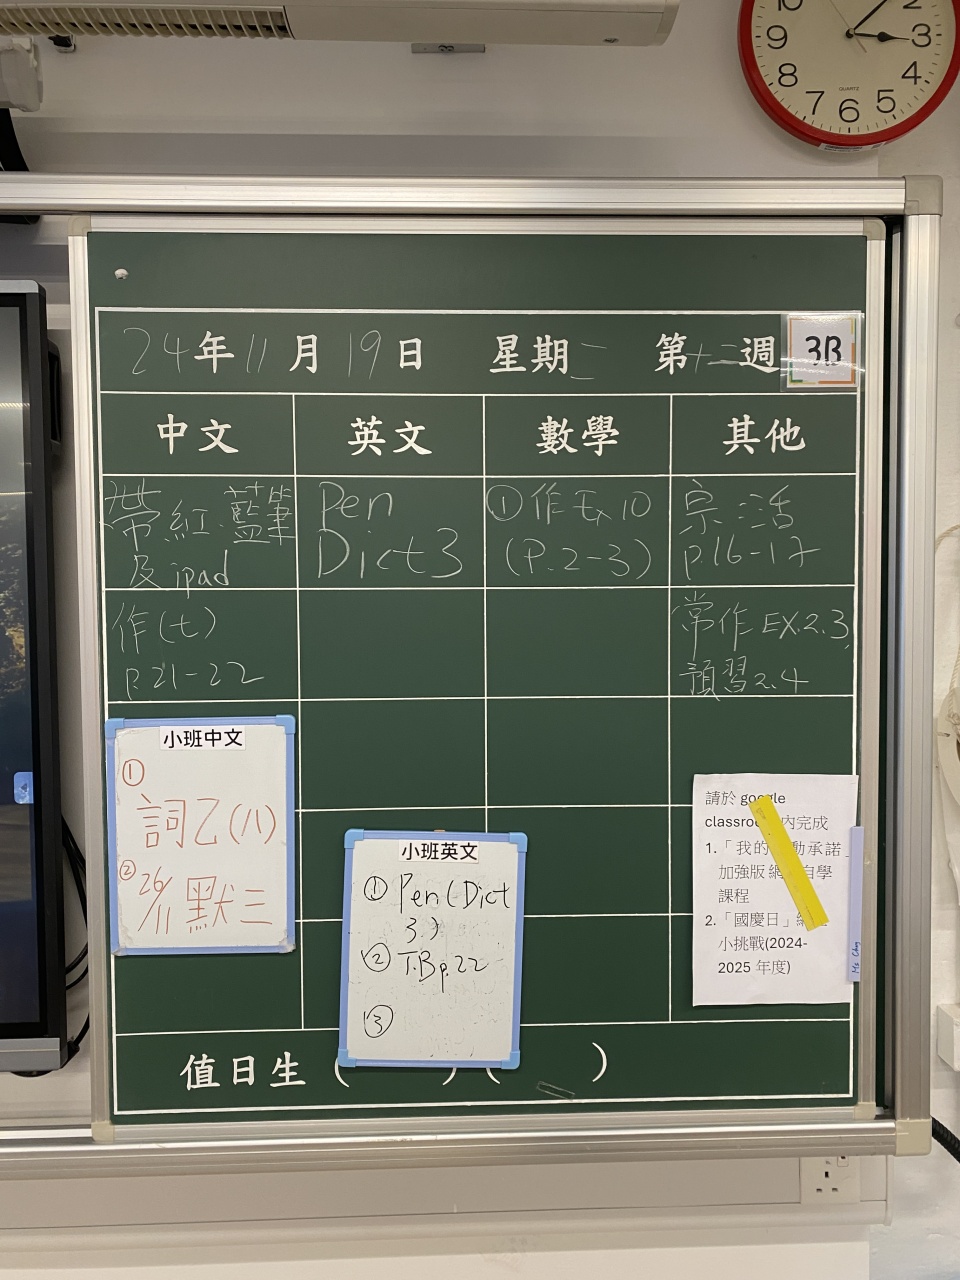 10 2
9 3
8 4
7 6 5
QUARTZ
24年11月19日 星期二 第十二週 3B
中文 英文 數學 其他
帶紅、藍筆
及ipad
Pen
Dict 3
①作Ex 10
(P.2-3)
宗:活
p.16-17
作(七)
p.21-22
常作EX.2.3,
預習2.4
小班中文
①
詞乙(八)
②
26/11 默三
小班英文
① Pen (Dict
3.)
② T.B p.22
③
請於 google
classroom 內完成
1.「我的 動承諾」
加強版網 自學
課程
2.「國慶日」網
小挑戰(2024-
2025 年度)
值日生 ( ) ( )